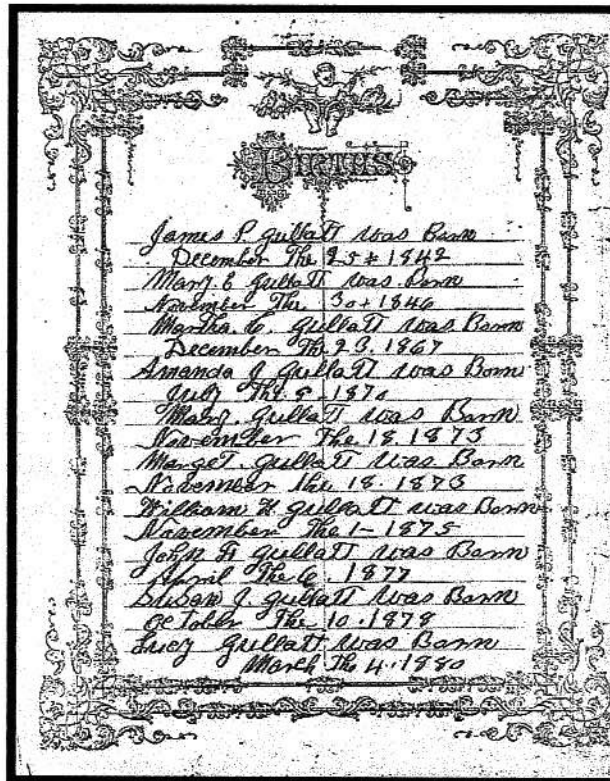 BIRTHS
James P. Gullatt was Born
December The 25 + 1842
Mary E Gullatt was Born
November The 30 + 1846
Martha C. Gullatt was Born
December The 23. 1867
Amanda J Gullatt was Born
July The 8. 1870
Mary. Gullatt was Born
November The 18. 1873
Marget. Gullatt was Born
November the 18. 1873
William H Gullatt was Born
November The 1 - 1875
John H Gullatt was Born
April The 6. 1877
Susan J. Gullatt was Born
October The 10. 1878
Lucy Gullatt was Born
March The 4. 1880